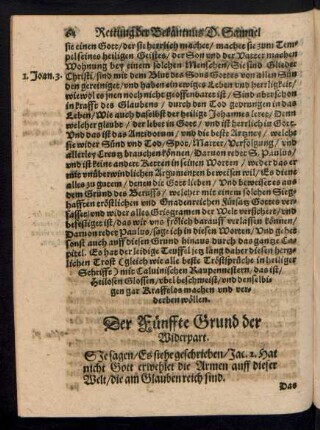 Rettung der Bekäntnus D. Samuel
sie einen Gott/ der sie herrlich machet/ machet sie zum Tem-
pel seines heiligen Geistes/ der Son und der Vatter machen
Wohnung bey einem solchen Menschen/ Sie sind Glieder
1. Joan. 3. Christi/ sind mit dem Blut des Sons Gottes von allen Sün
den gereiniget/ und haben ein ewiges Leben und herrligkeit/
wiewol es jnen noch nicht geoffenbaret ist/ Sind aber schon
in krafft des Glaubens/ durch den Tod gedrungen in das
Leben/ Wie auch daselbst der heilige Johannes leret/ Denn
welcher glaube/ der lebet in Gott/ und ist herrlich in Gott.
Und das ist das Antidotum/ und die beste Artzney/ welche
sie wider Sünd und Tod/ Spot/ Marter/ Verfolgung/ und
allerley Creutz brauchen können/ Darvon redet S. Paulus/
und ist keins andere Ketten in seinen Worten/ weder das er
mit unüberwindlichen Argumenten beweisen wil/ Es dienet
alles zu gutem/ denen die Gott lieben/ Und beweiset es aus
dem Grund des Beruffs/ welcher mit einem solchen Sieg
hafften tröstlichen und Gnadenreichen Fürsatz Gottes ver-
fasset/ und wider alles Grisgramen der Welt versichert/ und
befestiget ist/ das wir uns frölich darauff verlassen können/
Darvon redet Paulus/ sage ich in diesen Worten/ Und gehet
sonst auch auff diesen Grund hinaus durch das gantze Ca-
pitel. Es hat der leidige Teuffel jetz lang daher diesen herr-
lichen Trost (gleich wie alle beste Trostsprüche in heiliger
Schrifft) mit Caluinischen Raupennestern/ das ist/
Heilosen Glossen/ ubel beschmeist/ und denselbi-
gen gar Krafftlos machen und ver-
derben wöllen.
Der Fünffte Grund der
Widerpart.
SIe sagen/ Es stehe geschrieben/ Jac. 2. Hat
nicht Gott erwehlet die Armen auff dieser
Welt/ die am Glauben reich sind.
Das